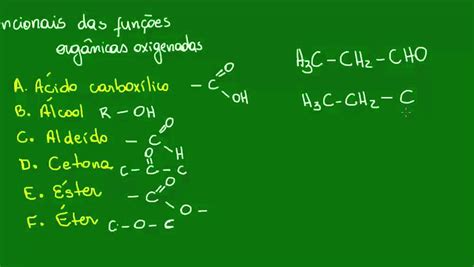 ncionais das funções
orgânicas oxigenadas
A. Ácido carboxílico - C O OH
B. Álcool R - OH
C. Aldeído - C O H
D. Cetona C - C - C O
E. Éster - C O O -
F. Éter C - O - C
H₃C - CH₂ - CHO
H₃C - CH₂ - C